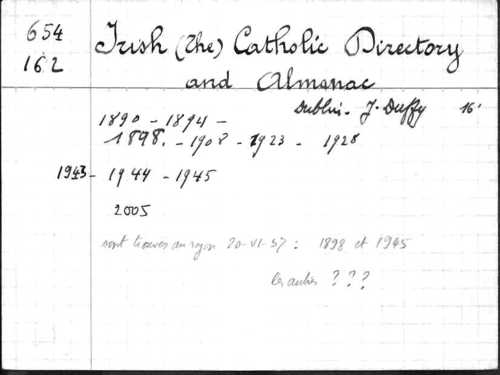 654
162
Irish (The) Catholic Directory
and Almanac
Dublin - J. Duffy 16°
1890 - 1894 -
1898. - 1908 - 1923 - 1928
1943 - 1944 - 1945
2005
sont trouvés au rayon 20-VI-57 : 1898 et 1945
les autres ? ? ?